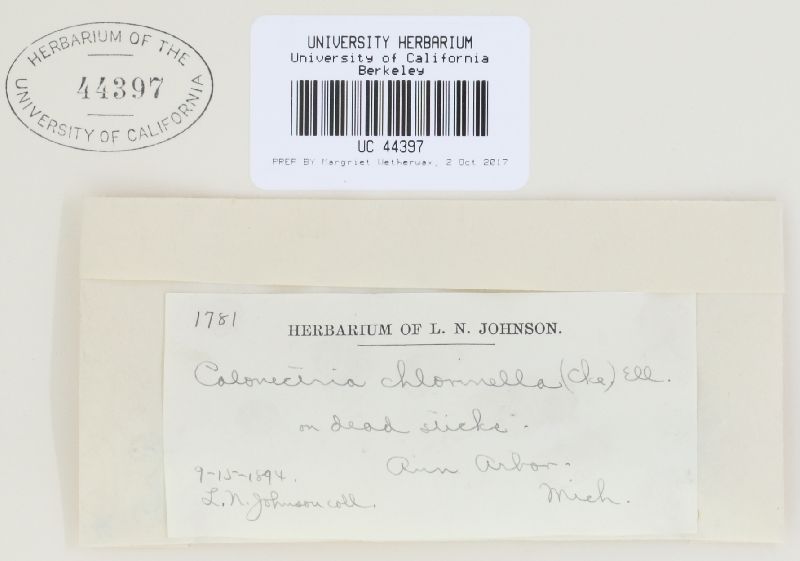 HERBARIUM OF THE
44397
UNIVERSITY OF CALIFORNIA
UNIVERSITY HERBARIUM
University of California
Berkeley
UC 44397
PREP BY Margriet Wetherwax, 2 Oct 2017
1781
HERBARIUM OF L. N. JOHNSON.
Calonectria chlorinella (Cke) Ell.
on dead sticks.
Ann Arbor.
9-15-1894.
Mich.
L. N. Johnson coll.